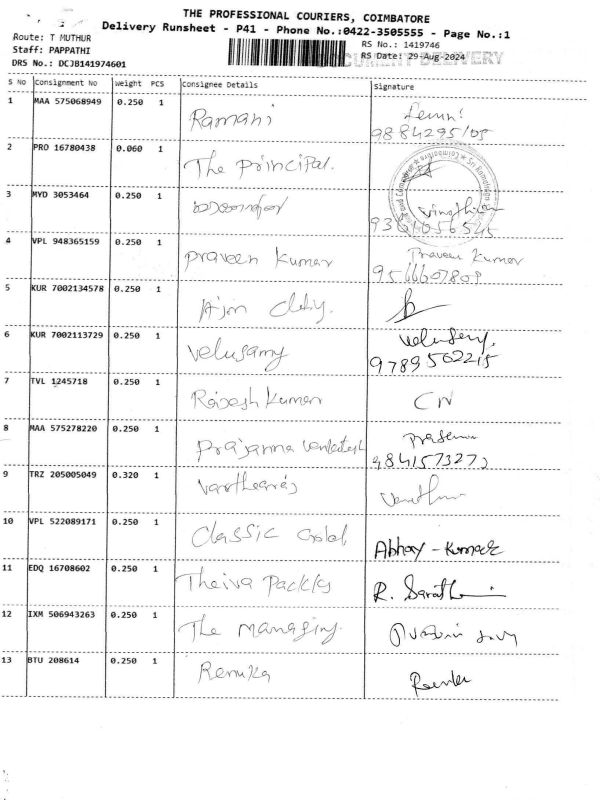 THE PROFESSIONAL COURIERS, COIMBATORE
Delivery Runsheet - P41 - Phone No.:0422-3505555 - Page No.:1
Route: T MUTHUR RS No.: 1419746
Staff: PAPPATHI RS Date: 29-Aug-2024
DRS No.: DCJB141974601
S No Consignment No Weight PCS Consignee Details Signature
1 MAA 575068949 0.250 1 Ramani
2 PRO 16780438 0.060 1 The Principal.
3 MYD 3053464 0.250 1
4 VPL 948365159 0.250 1 Praveen Kumar Praveen Kumar
5 KUR 7002134578 0.250 1
6 KUR 7002113729 0.250 1 Velusamy
9789562215
7 TVL 1245718 0.250 1 Rajesh Kumar CN
8 MAA 575278220 0.250 1
9 TRZ 205005049 0.320 1
10 VPL 522089171 0.250 1 Classic Abhay - Kumar
11 EDQ 16708602 0.250 1 Theiva R.
12 IXM 506943263 0.250 1 The Managing.
13 BTU 208614 0.250 1 Renuka